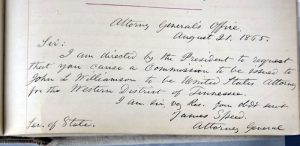 Attorney General's Office,
August 21. 1865.
Sir:
I am directed by the President to request
that you cause a Commission to be issued to
John L Williamson to be United States Attorney
for the Western District of Tennessee.
I am sir, very Res. your obdt servt
James Speed
Attorney General
Sec. of State.